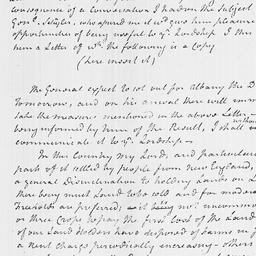 consequence of a Conversation I had on the Subject
Genl. Schuyler, who assured me it wd. give him pleasure
opportunities of being useful to yr. Lordship. I
him a Letter of wh. the following is a Copy
(here insert it)
The General expects to set out for Albany the D
Tomorrow, and on his arrival there will imm
take the measures mentioned in the above Letter
being informed by him of the Result, I shall without
communicate it to yr. Lordship—
In this Country my Lord, and particular
part of it settled by people from New England,
a general Disinclination to holding Lands on L
there being much Land to be sold and for modera
Freeholds are preferred; as it being not uncommon
or three Crops to pay the first Cost of the Land
of our Land Holders have disposed of Farms on
a Rent Charge periodically encreasing— others